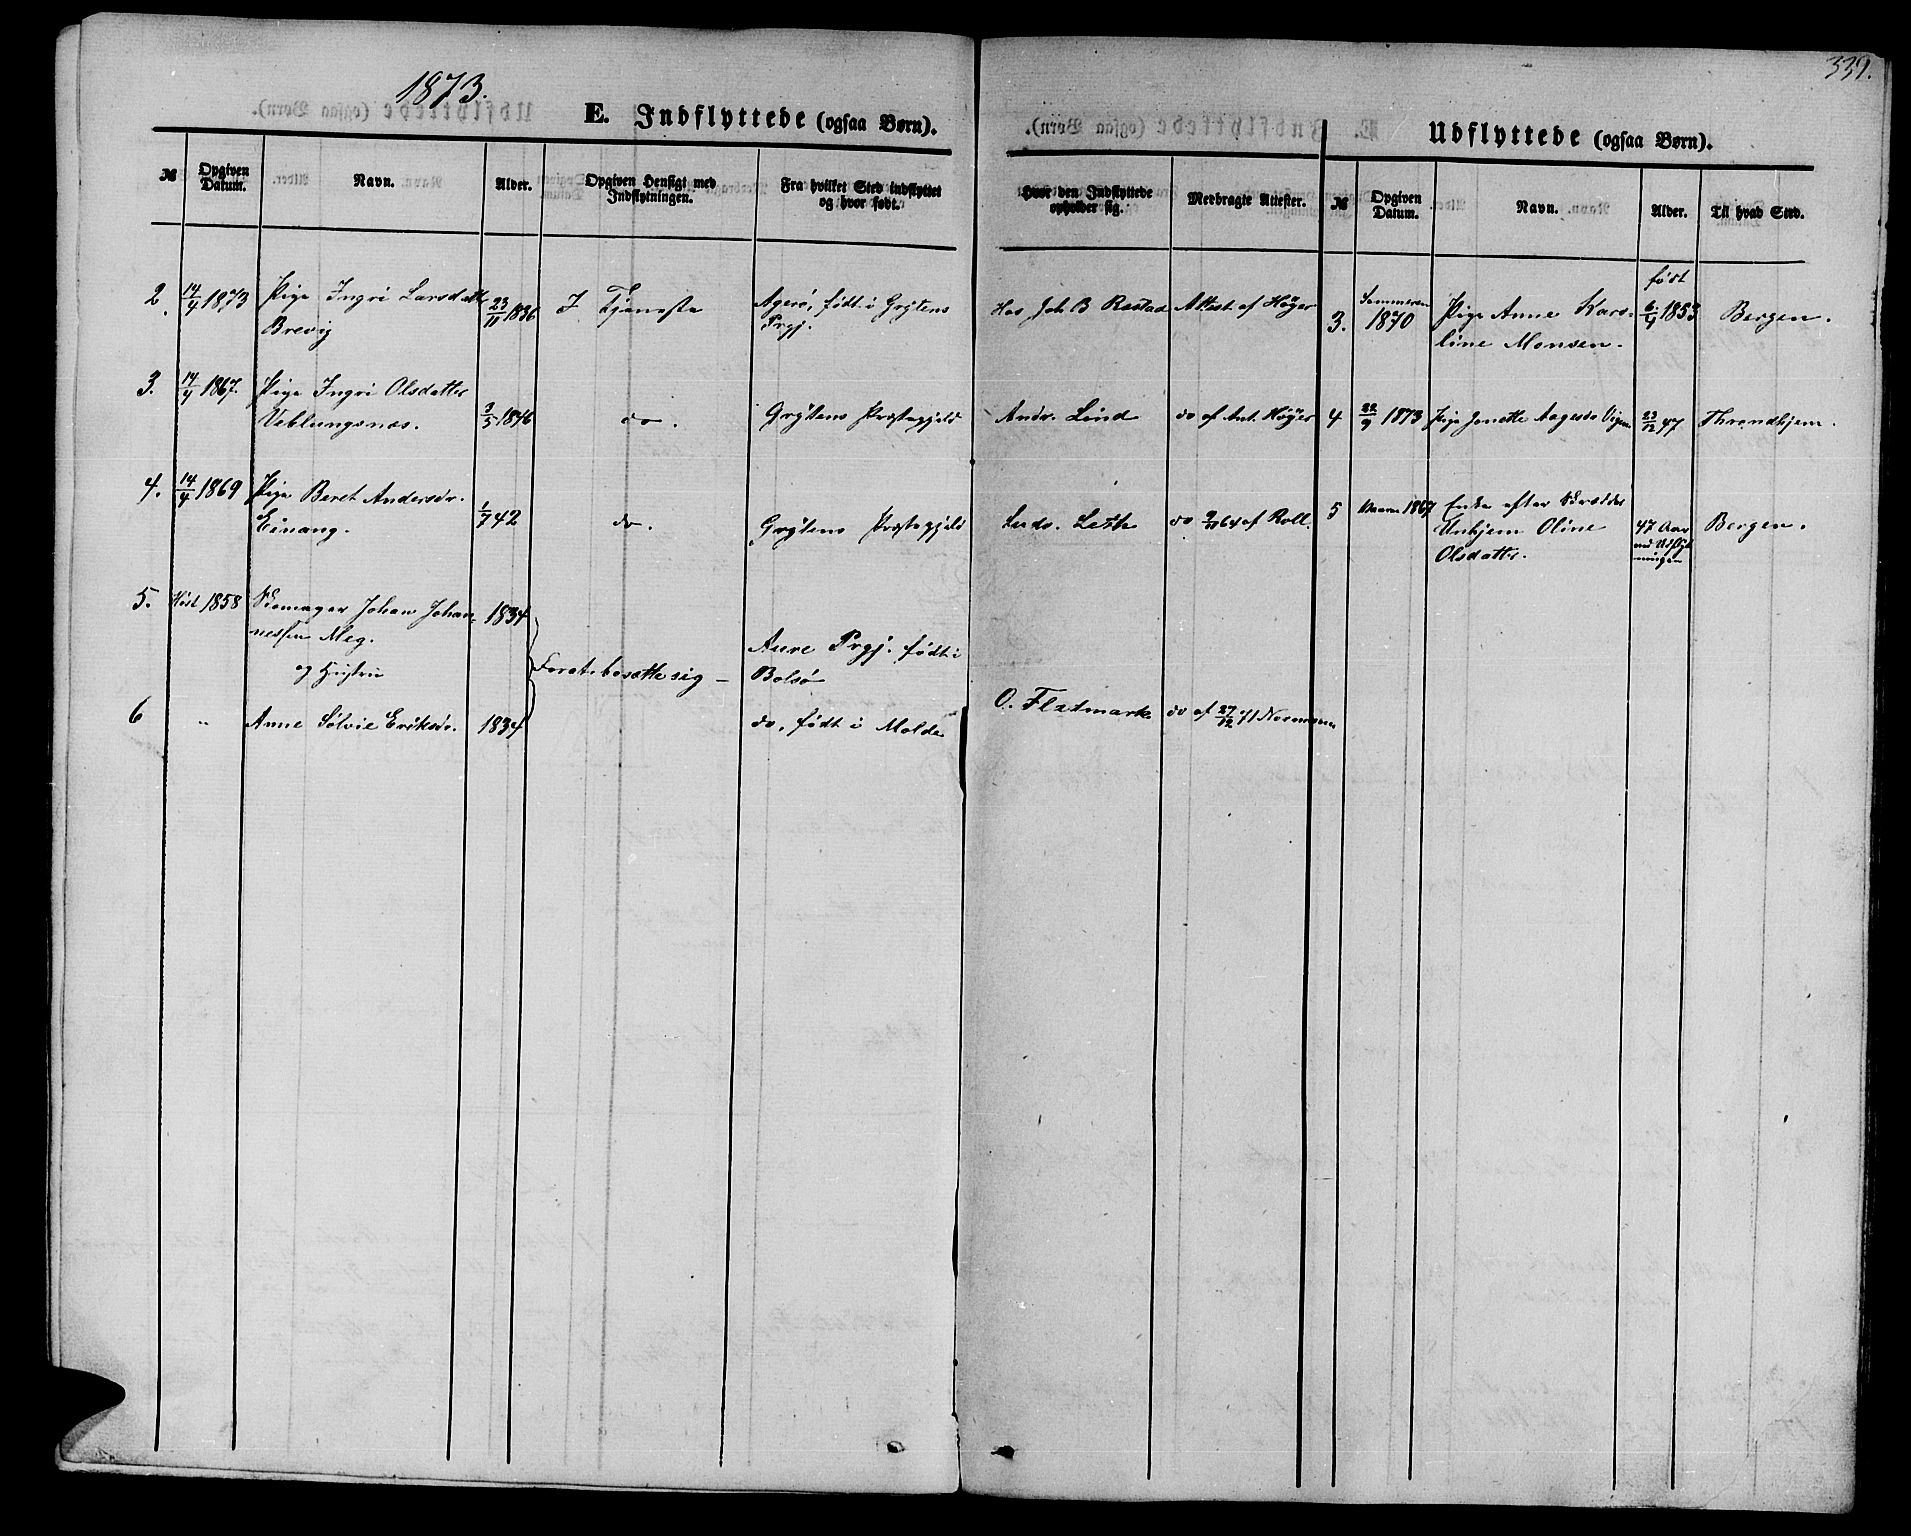 1873.
339.
E. Indflyttede (ogsaa Børn).
Udflyttede (ogsaa Børn).
№ Opgiven Datum. Navn. Alder. Opgiven Hensigt med Indflytningen. Fra hvilket Sted indflyttet og hvor født. Hvor den Indflyttede opholder sig. Medbragte Attester.
№ Opgiven Datum. Navn. Alder. Til hvad Sted.
2. 14/4 1873 Pige Ingri Larsdatter 23/11 1836 I Tjeneste Agerø, født i Grytens Hos Joh B Restad Attest af Høyer
Brevig Prgj.
3. 14/4 1867. Pige Ingri Olsdatter
Veblungsnæs. 3/5 1846 do. Grytens Præstegjeld Andr. Lind do af Ant. Høyer
4. 14/4 1869 Pige Beret Andersdr.
Einang. 1/7 42 do. Grytens Præstegjeld Lesth do af Roll.
5. Høst 1858 Skomager Johan Johan- 1834
nessen Meg. Aure Prgj. født i
og Hustru For at bosætte sig — Bolsø
6 " Anne Sølvie Eriksdr. 1834 do, født i Molde O. Flatmark do af 27/12 71 Normann
født
3. Sommeren Pige Anne Kars- 6/4 1853 Bergen.
1870 line Monsen.
4 22/9 1873 Pige Jonette Aagesdr 23/12 47 Throndhjem.
5 Vaaren 1867 Enke efter Skrædder
Unhjem Oline 47 Aar Bergen.
Olsdatter. ved Udflyt
ningen